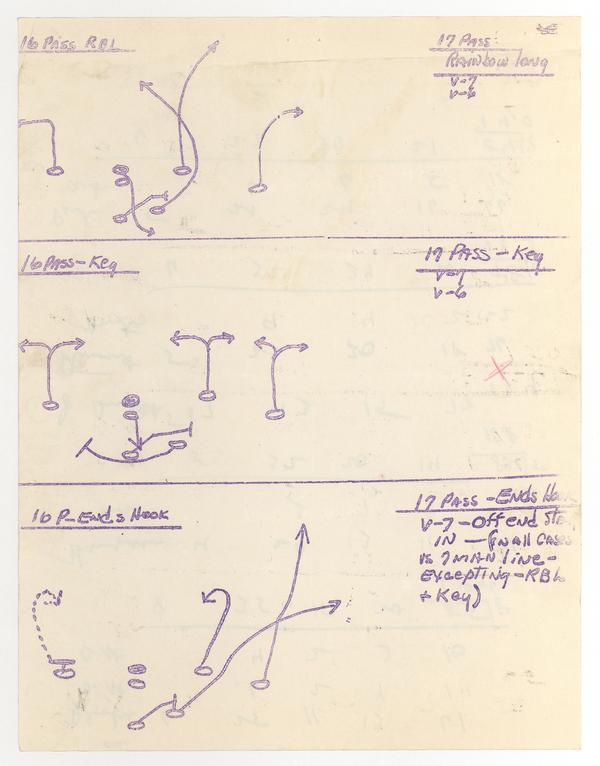 16 PASS RBL
17 PASS
RAINBOW long
V-7
V-6
16 PASS-Key
17 PASS-Key
V-7
V-6
16 P-Ends HOOK
17 PASS-Ends
V-7-Off end
IN - (IN all CASES
VS 7 MAN line-
EXCEPTING-RBL
+ Key)